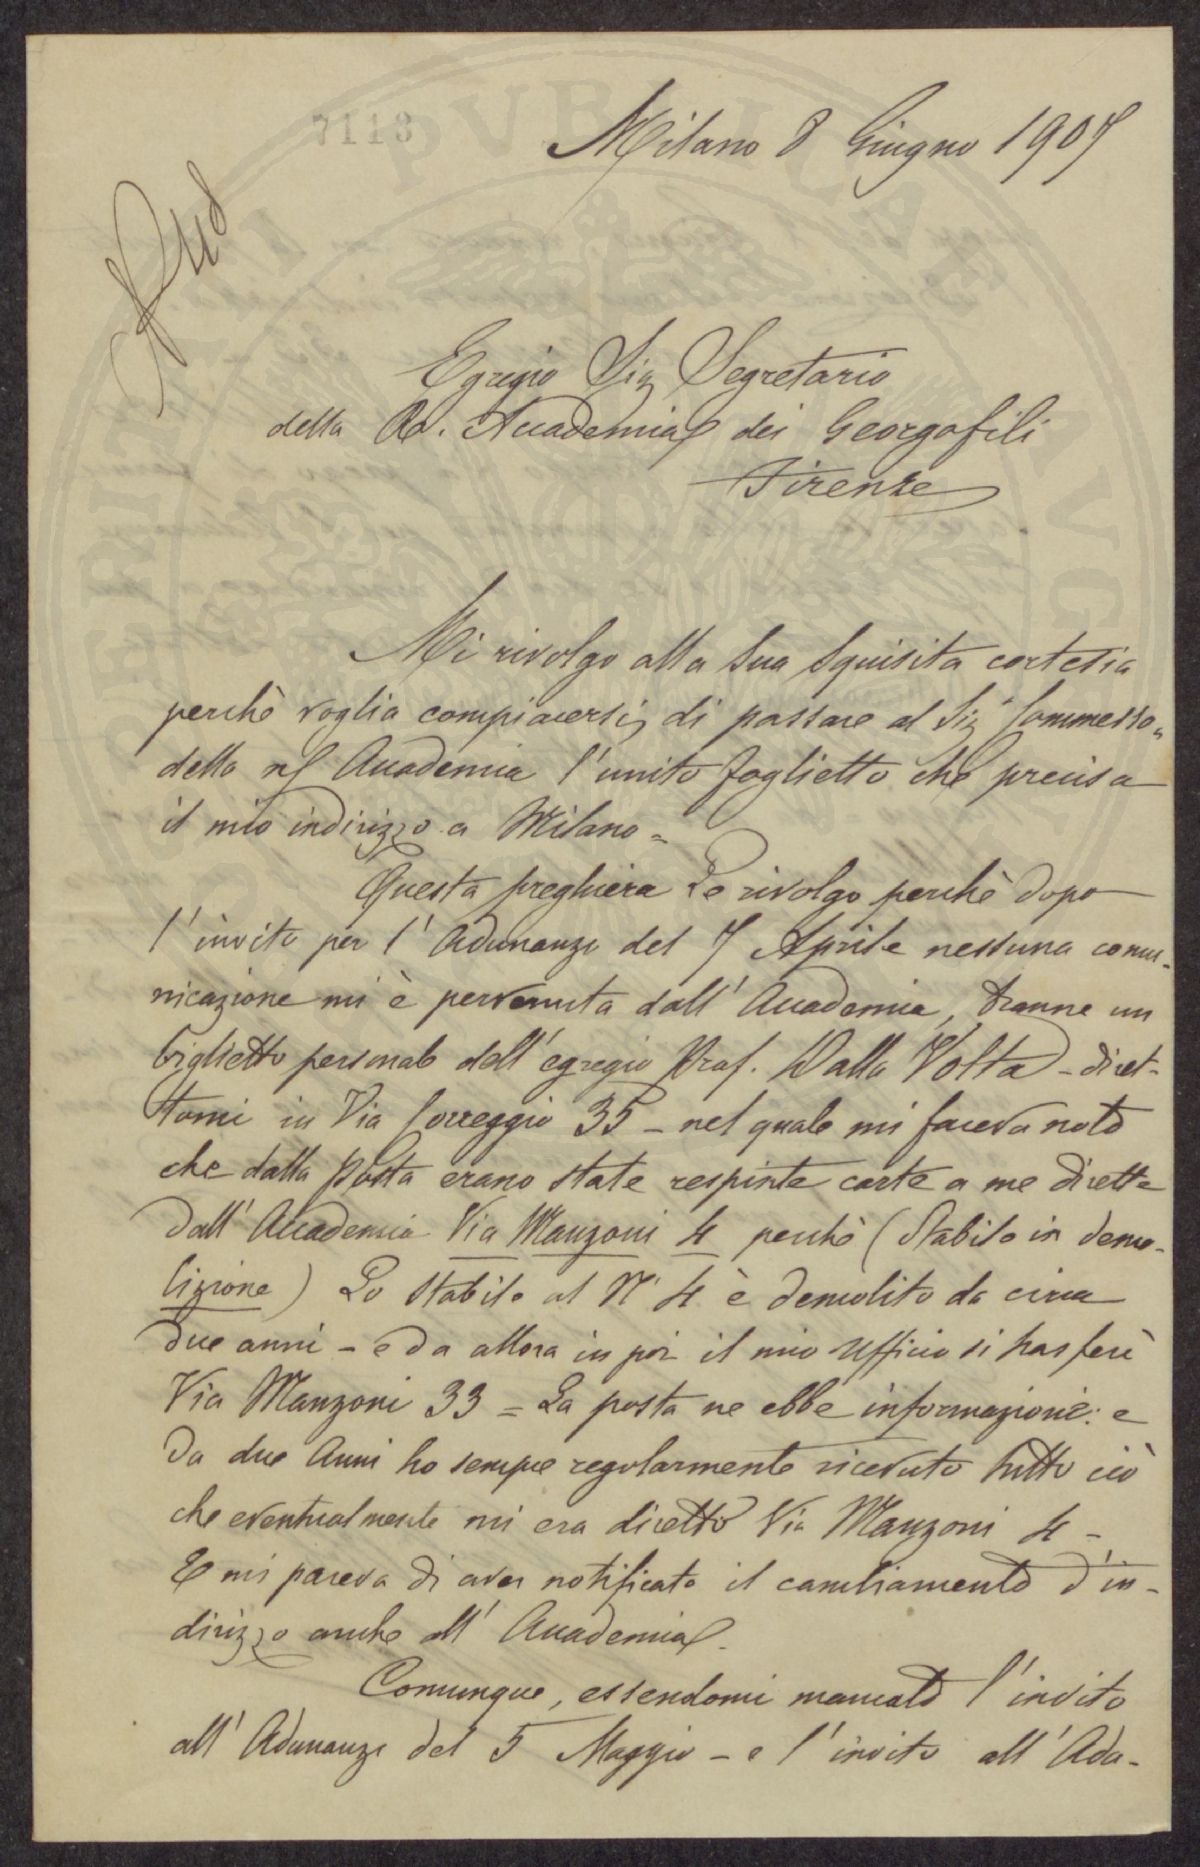 7113
Milano 8 Giugno 1907
Egregio Sig Segretario
della R. Accademia dei Georgofili
Firenze
Mi rivolgo alla Sua Squisita cortesia
perchè voglia compiacersi di passare al Sig Commesso
della Accademia l'unito foglietto che precisa
il mio indirizzo a Milano =
Questa preghiera Le rivolgo perchè dopo
l'invito per l'Adunanza del 7 Aprile nessuna comu-
nicazione mi è pervenuta dall'Accademia, tranne un
biglietto personale dell'egregio Prof. Dalla Volta - diret-
tomi in Via Correggio 35 - nel quale mi faceva noto
che dalla Posta erano state respinte carte a me dirette
dall'Accademia Via Manzoni 4 perchè (Stabile in demo-
lizione) Lo stabile al N° 4 è demolito da circa
due anni - e da allora in poi il mio Ufficio si trasferì
Via Manzoni 33 = La posta ne ebbe informazione: e
da due Anni ho sempre regolarmente ricevuto tutto ciò
che eventualmente mi era diretto Via Manzoni 4 -
E mi pareva di aver notificato il cambiamento d'in-
dirizzo anche all'Accademia.
Comunque, essendomi mancato l'invito
all'Adunanza del 5 Maggio - e l'invito all'Adu-